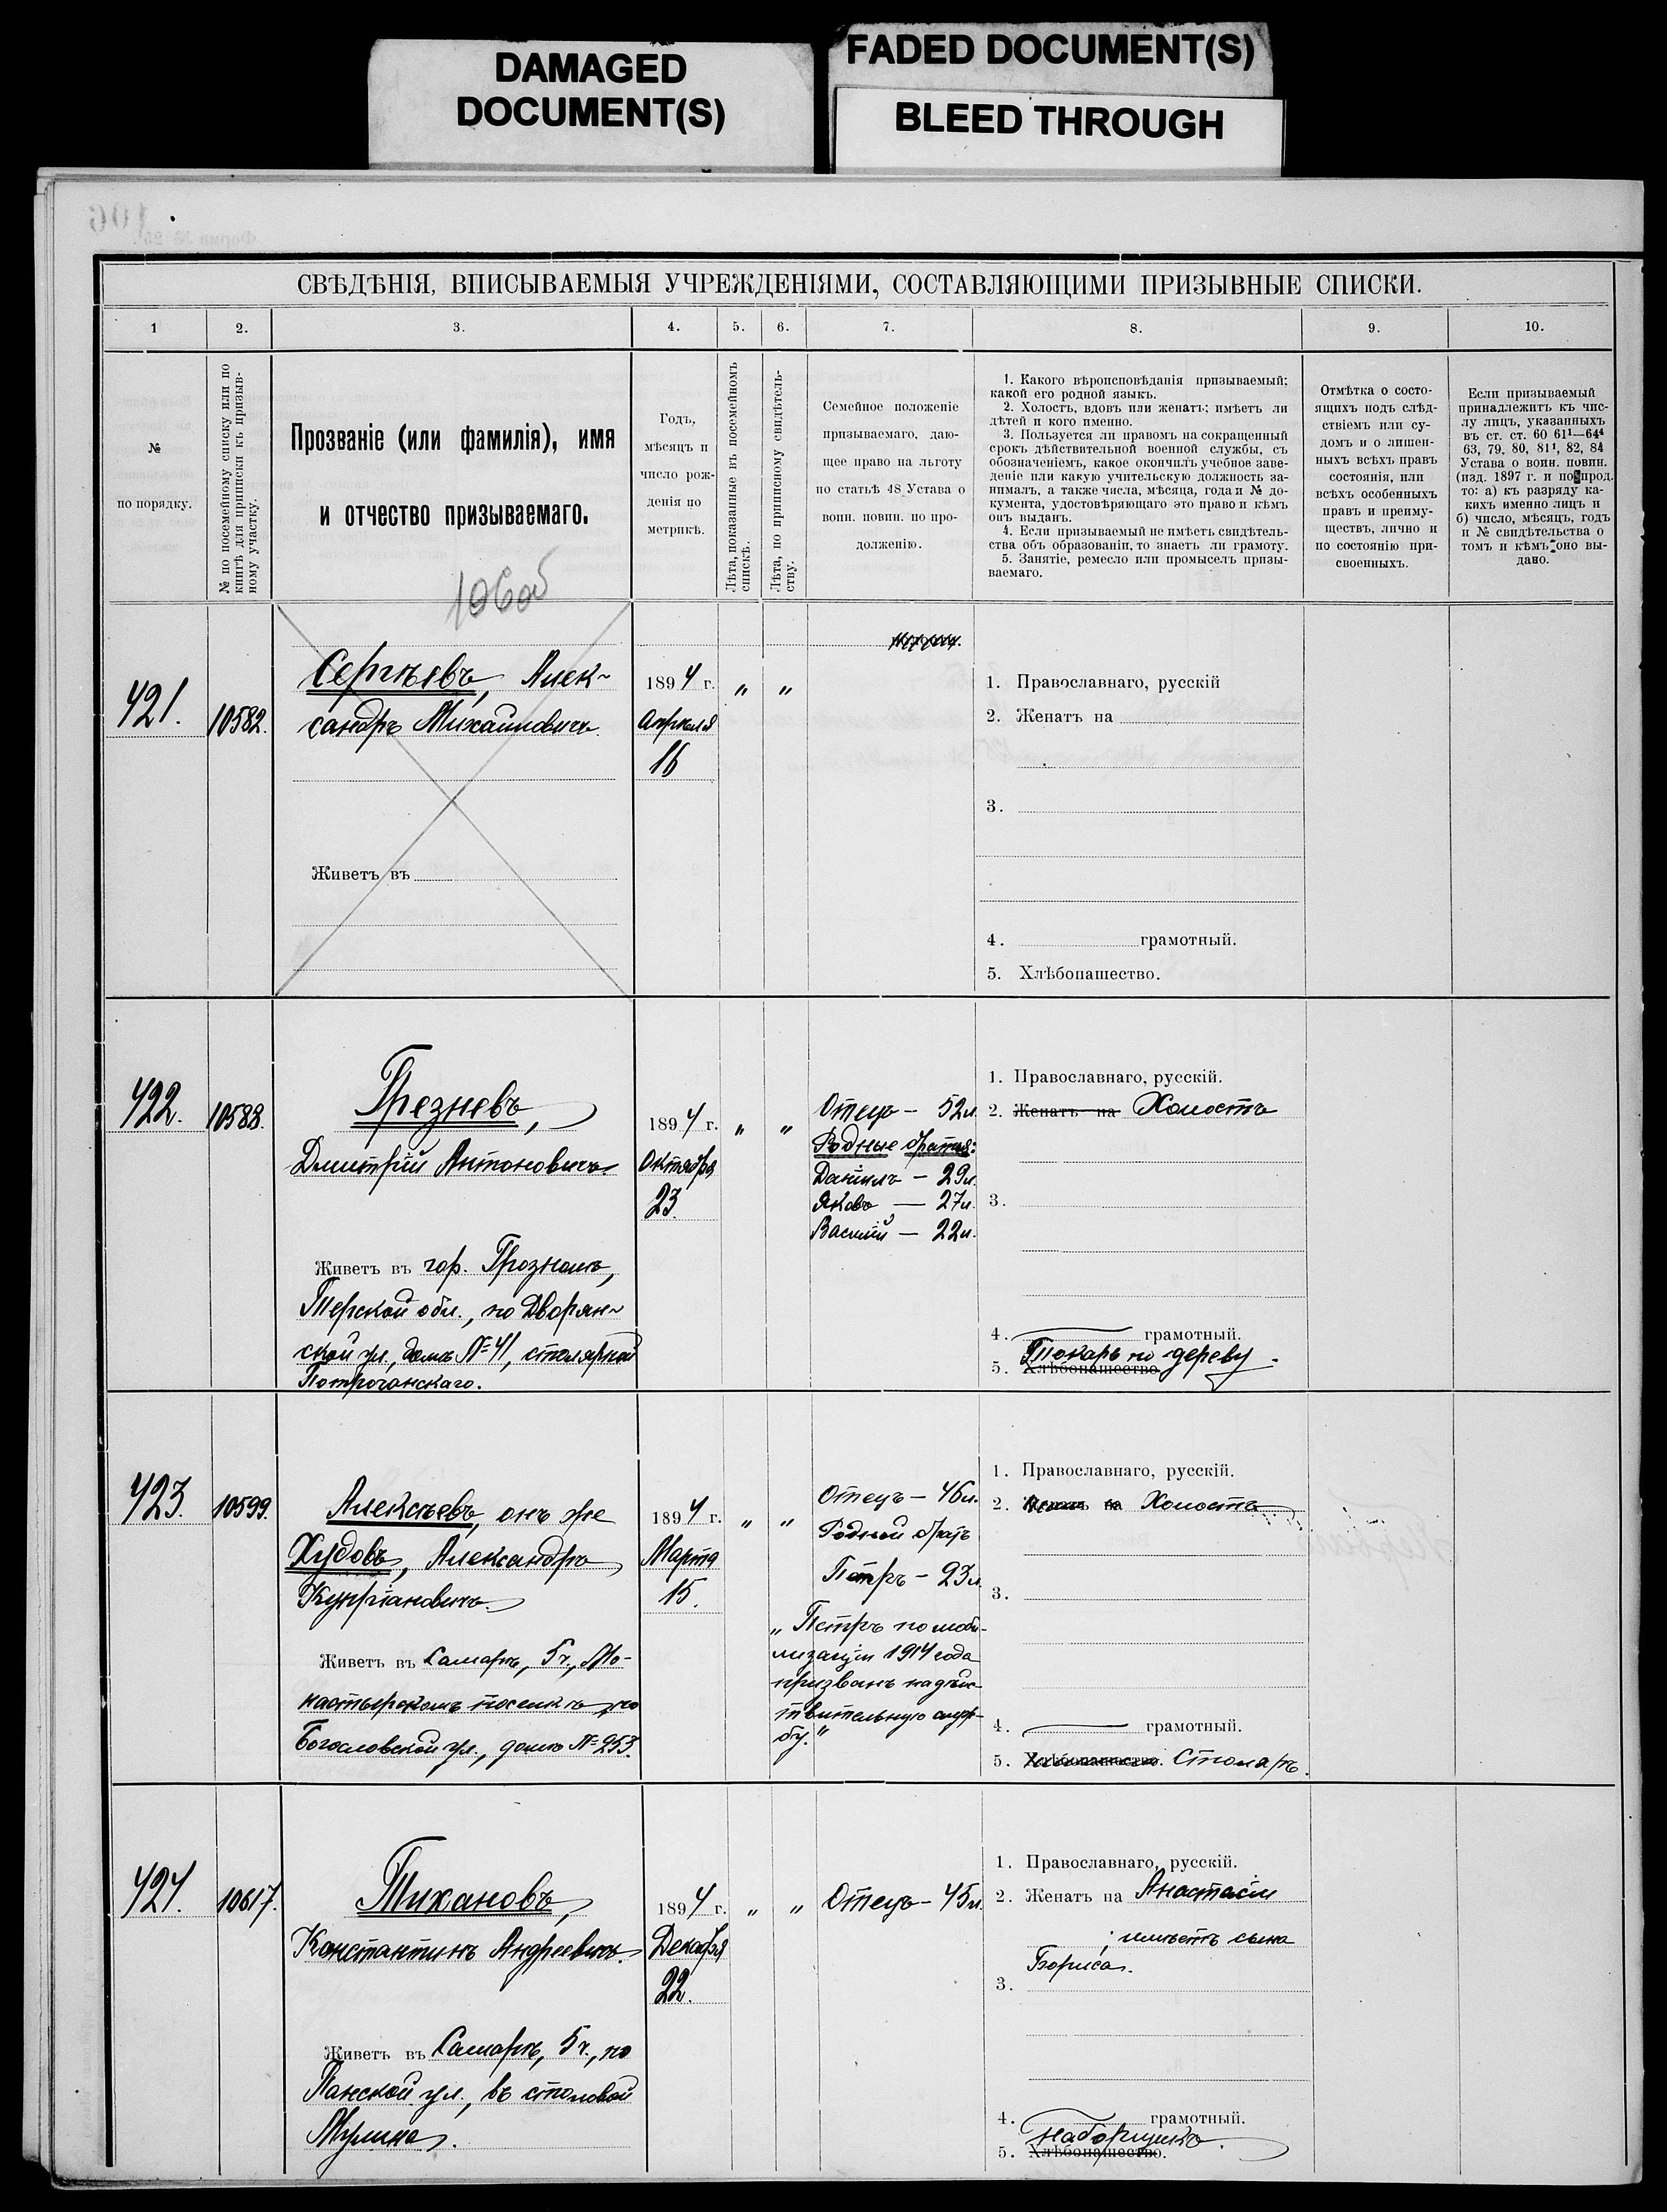 DAMAGED
DOCUMENT(S)
FADED DOCUMENT(S)
BLEED THROUGH
106
Форма № 25.
СВѢДѢНІЯ, ВПИСЫВАЕМЫЯ УЧРЕЖДЕНІЯМИ, СОСТАВЛЯЮЩИМИ ПРИЗЫВНЫЕ СПИСКИ.
1 2. 3. 4. 5. 6. 7. 8. 9. 10.
№
по порядку.
№ по посемейному списку или по
книгѣ для приписки къ призыв-
ному участку.
Прозваніе (или фамилія), имя
и отчество призываемаго.
106об
Годъ,
мѣсяцъ и
число рож-
денія по
метрикѣ.
Лѣта, показанные въ посемейномъ
спискѣ.
Лѣта, по приписному свидѣтель-
ству.
Семейное положеніе
призываемаго, даю-
щее право на льготу
по статьѣ 48 Устава о
воин. повин. по про-
долженію.
1. Какого вѣроисповѣданія призываемый;
какой его родной языкъ.
2. Холостъ, вдовъ или женатъ; имѣетъ ли
дѣтей и кого именно.
3. Пользуется ли правомъ на сокращенный
срокъ дѣйствительной военной службы, съ
обозначеніемъ, какое окончилъ учебное заве-
деніе или какую учительскую должность за-
нималъ, а также числа, мѣсяца, года и № до-
кумента, удостовѣряющаго это право и кѣмъ
онъ выданъ.
4. Если призываемый не имѣетъ свидѣтель-
ства объ образованіи, то знаетъ ли грамоту.
5. Занятіе, ремесло или промыселъ призы-
ваемаго.
Отмѣтка о состо-
ящихъ подъ слѣд-
ствіемъ или су-
домъ и о лишен-
ныхъ всѣхъ правъ
состоянія, или
всѣхъ особенныхъ
правъ и преиму-
ществъ, лично и
по состоянію при-
своенныхъ.
Если призываемый
принадлежитъ къ чис-
лу лицъ, указанныхъ
въ ст. ст. 60 61¹—64⁴
63, 79, 80, 81¹, 82, 84
Устава о воин. повин.
(изд. 1897 г. и по прод.
то: а) къ разряду ка-
кихъ именно лицъ и
б) число, мѣсяцъ, годъ
и № свидѣтельства о
томъ и кѣмъ оно вы-
дано.
421. 10582.
Сергѣевъ, Алек-
сандръ Михаиловичъ
Живетъ въ
1894 г.
Апрѣля
16
" "
1. Православнаго, русскій
2. Женатъ на
3.
4. грамотный.
5. Хлѣбопашество.
422. 10588.
Грезневъ,
Дмитрій Антоновичъ
Живетъ въ гор. Грозномъ,
Терской обл., по Дворян-
ской ул., домъ № 41, столярной
Потрочанскаго.
1894 г.
Октября
23.
" "
Отецъ — 52 л.
Родные братья:
Даніилъ — 29 л.
Яковъ — 27 л.
Василій — 22 л.
1. Православнаго, русскій.
2. Женатъ на Холостъ
3.
4. грамотный.
5. Хлѣбопашество Токарь по дереву.
423. 10599.
Алексѣевъ, онъ же
Худовъ, Александръ
Купріановичъ
Живетъ въ Самарѣ, 5 ч., Мо-
настырскомъ поселкѣ, по
Богословской ул., домъ № 253.
1894 г.
Марта
15.
" "
Отецъ — 46 л.
Родной братъ
Петръ — 23 л.
„Петръ по моби-
лизаціи 1914 года
призванъ на дѣйс-
твительную служ-
бу."
1. Православнаго, русскій.
2. Женатъ на Холостъ
3.
4. грамотный.
5. Хлѣбопашество. Столяръ.
424. 10617.
Тихановъ,
Константинъ Андреевичъ
Живетъ въ Самарѣ, 5 ч., по
Панской ул., въ столовой
Мулина.
1894 г.
Декабря
22.
" "
Отецъ — 45 л.
1. Православнаго, русскій.
2. Женатъ на Анастасіи
; имѣетъ сына
Бориса.
3.
4. грамотный.
5. Хлѣбопашество. наборщикъ.